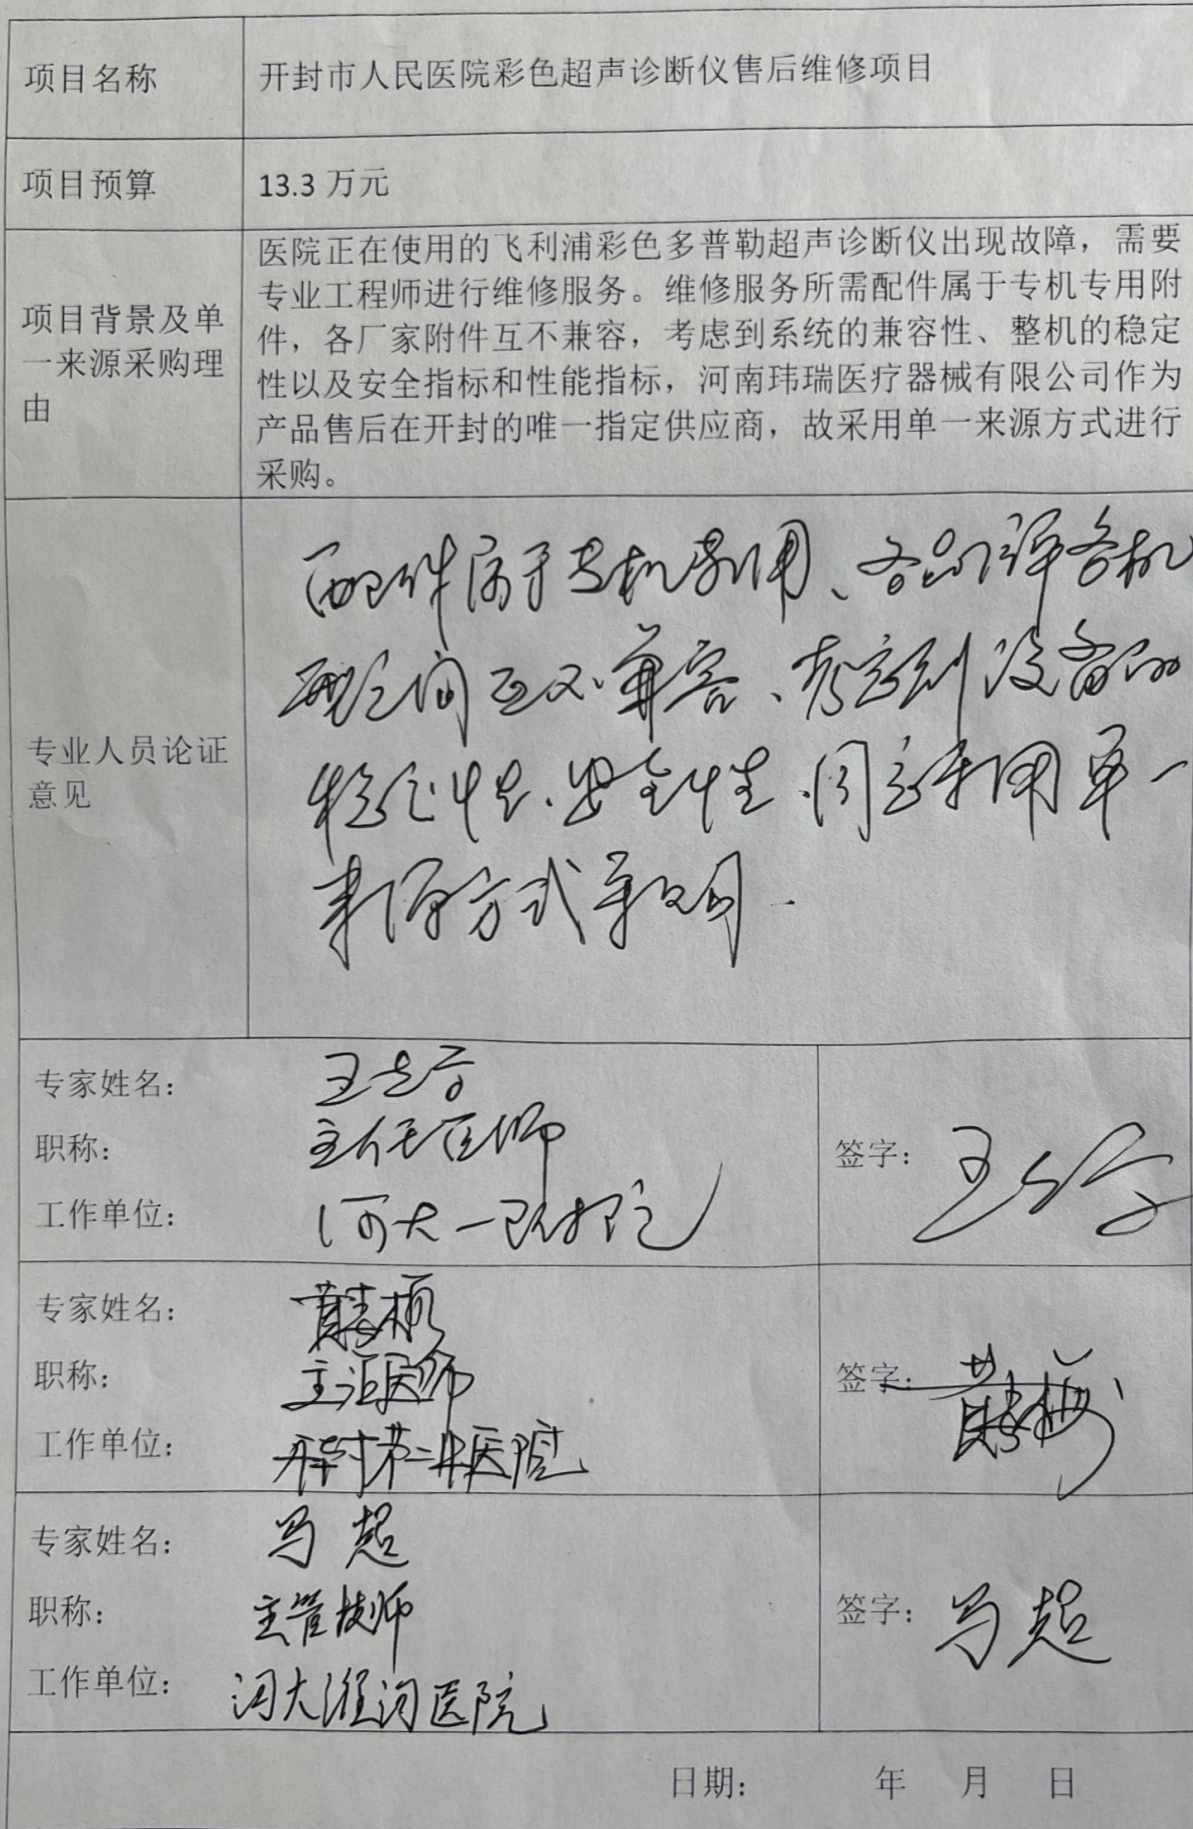 项目名称 开封市人民医院彩色超声诊断仪售后维修项目
项目预算 13.3 万元
医院正在使用的飞利浦彩色多普勒超声诊断仪出现故障，需要
专业工程师进行维修服务。维修服务所需配件属于专机专用附
项目背景及单 件，各厂家附件互不兼容，考虑到系统的兼容性、整机的稳定
一来源采购理 性以及安全指标和性能指标，河南玮瑞医疗器械有限公司作为
由 产品售后在开封的唯一指定供应商，故采用单一来源方式进行
采购。
专业人员论证
意见
配件属于专机专用、各品牌各机
型之间互不兼容、考虑到设备的
稳定性、安全性、同意采用单一
来源方式采购
专家姓名： 王
职称： 主任医师
工作单位： 河大一附院
签字： 王
专家姓名： 黄
职称： 主治医师
工作单位： 开封第二中医院
签字： 黄
专家姓名： 冯超
职称： 主管技师
工作单位： 河大淮河医院
签字： 冯超
日期： 年 月 日